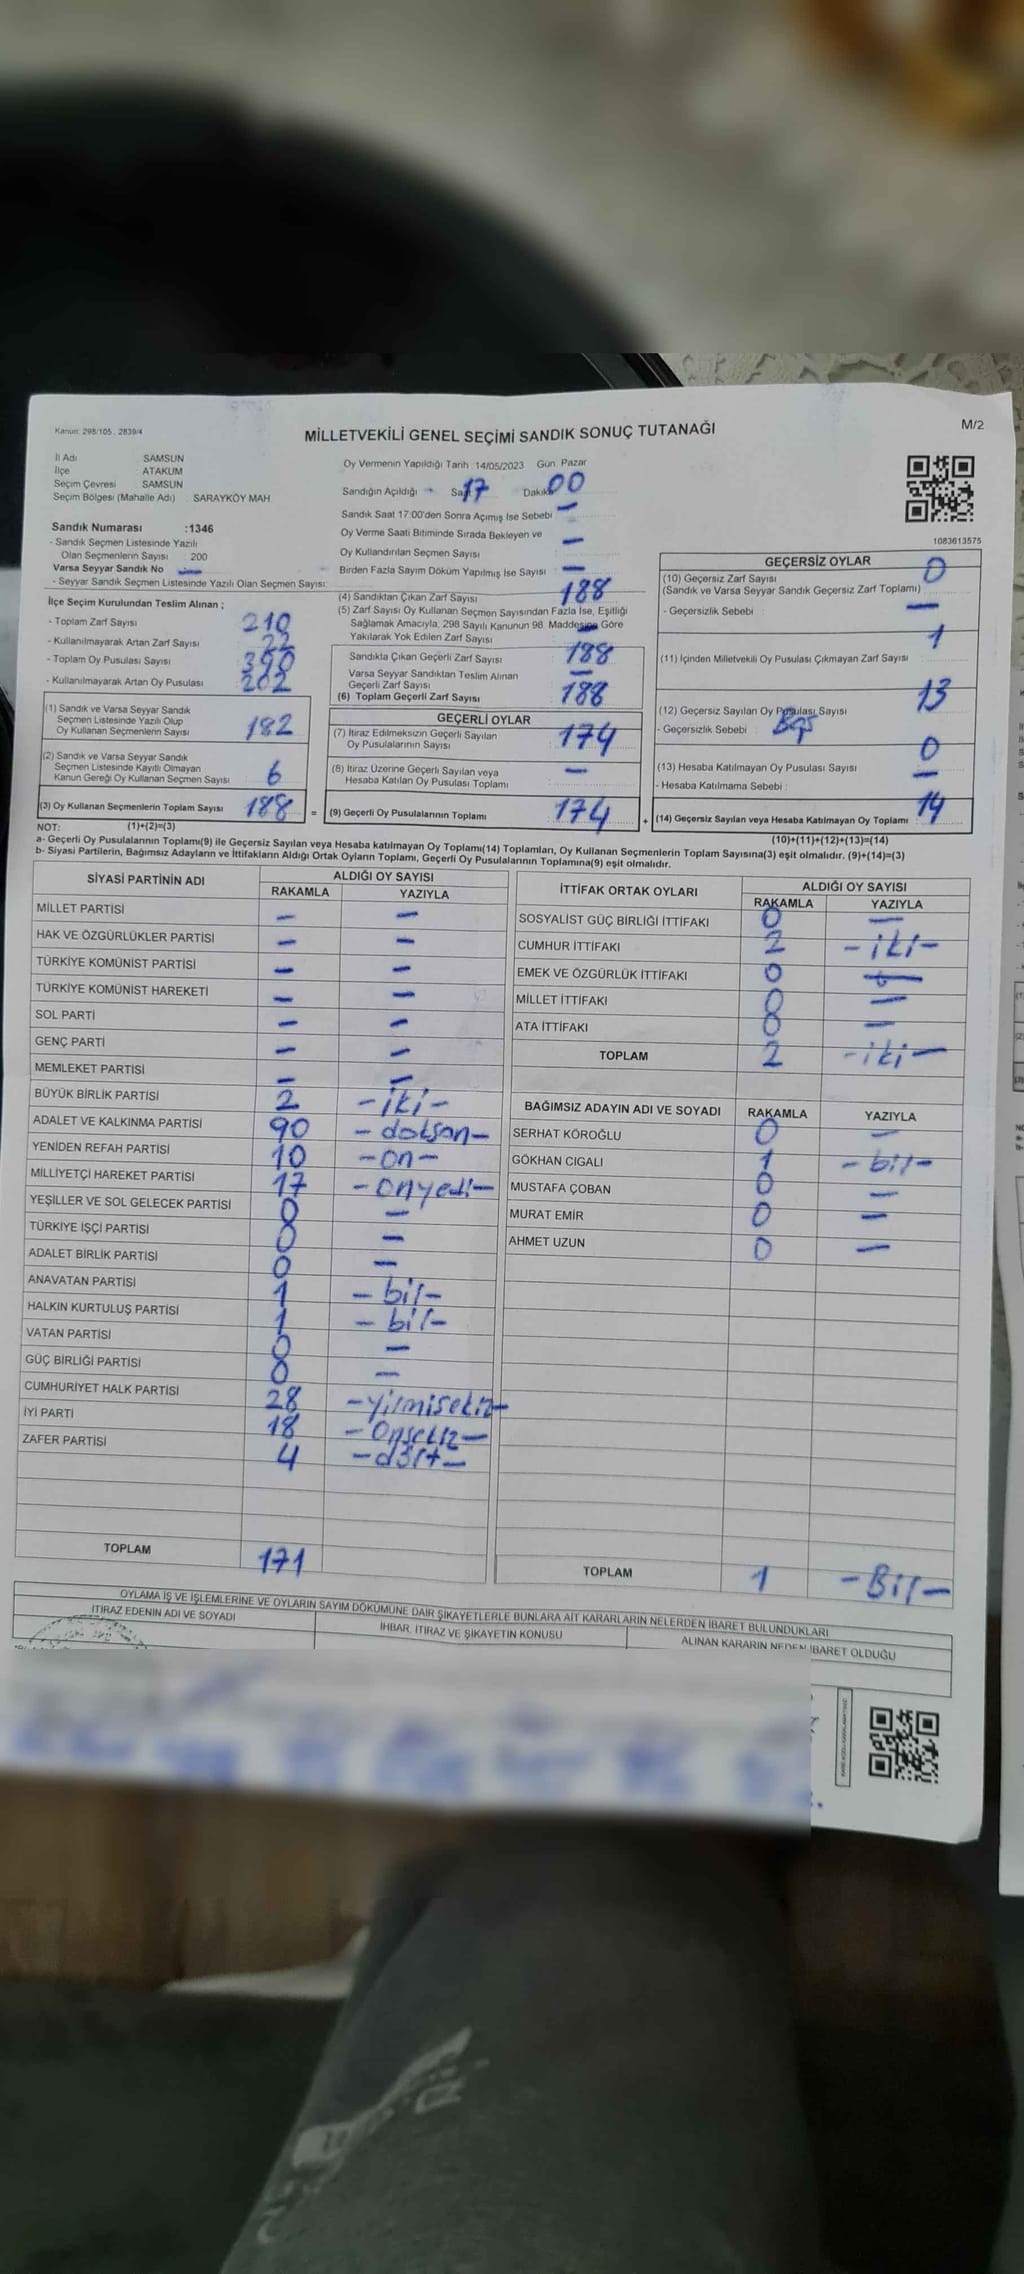 Kanun: 298/105, 2839/4
MİLLETVEKİLİ GENEL SEÇİMİ SANDIK SONUÇ TUTANAĞI
M/2
İl Adı : SAMSUN
İlçe : ATAKUM
Seçim Çevresi : SAMSUN
Seçim Bölgesi (Mahalle Adı) : SARAYKÖY MAH
Sandık Numarası :1346
- Sandık Seçmen Listesinde Yazılı
Olan Seçmenlerin Sayısı : 200
Varsa Seyyar Sandık No —
- Seyyar Sandık Seçmen Listesinde Yazılı Olan Seçmen Sayısı:
Oy Vermenin Yapıldığı Tarih : 14/05/2023 Gün: Pazar
Sandığın Açıldığı Saat 17 Dakika 00
Sandık Saat 17:00'den Sonra Açımış İse Sebebi —
Oy Verme Saati Bitiminde Sırada Bekleyen ve
Oy Kullandırılan Seçmen Sayısı —
Birden Fazla Sayım Döküm Yapılmış İse Sayısı —
1083613575
İlçe Seçim Kurulundan Teslim Alınan ;
- Toplam Zarf Sayısı 210
- Kullanılmayarak Artan Zarf Sayısı 22
- Toplam Oy Pusulası Sayısı 390
- Kullanılmayarak Artan Oy Pusulası 202
(1) Sandık ve Varsa Seyyar Sandık
Seçmen Listesinde Yazılı Olup
Oy Kullanan Seçmenlerin Sayısı 182
(2) Sandık ve Varsa Seyyar Sandık
Seçmen Listesinde Kayıtlı Olmayan
Kanun Gereği Oy Kullanan Seçmen Sayısı 6
(3) Oy Kullanan Seçmenlerin Toplam Sayısı 188 =
(4) Sandıktan Çıkan Zarf Sayısı 188
(5) Zarf Sayısı Oy Kullanan Seçmen Sayısından Fazla İse, Eşitliği
Sağlamak Amacıyla, 298 Sayılı Kanunun 98. Maddesine Göre
Yakılarak Yok Edilen Zarf Sayısı —
Sandıkta Çıkan Geçerli Zarf Sayısı 188
Varsa Seyyar Sandıktan Teslim Alınan
Geçerli Zarf Sayısı —
(6) Toplam Geçerli Zarf Sayısı 188
GEÇERLİ OYLAR
(7) İtiraz Edilmeksizin Geçerli Sayılan
Oy Pusulalarının Sayısı 174
(8) İtiraz Üzerine Geçerli Sayılan veya
Hesaba Katılan Oy Pusulası Toplamı —
(9) Geçerli Oy Pusulalarının Toplamı 174 +
GEÇERSİZ OYLAR
(10) Geçersiz Zarf Sayısı 0
(Sandık ve Varsa Seyyar Sandık Geçersiz Zarf Toplamı)
- Geçersizlik Sebebi : —
(11) İçinden Milletvekili Oy Pusulası Çıkmayan Zarf Sayısı 1
(12) Geçersiz Sayılan Oy Pusulası Sayısı 13
- Geçersizlik Sebebi :
(13) Hesaba Katılmayan Oy Pusulası Sayısı 0
- Hesaba Katılmama Sebebi : —
(14) Geçersiz Sayılan veya Hesaba Katılmayan Oy Toplamı 14
NOT: (1)+(2)=(3) (10)+(11)+(12)+(13)=(14)
a- Geçerli Oy Pusulalarının Toplamı(9) ile Geçersiz Sayılan veya Hesaba katılmayan Oy Toplamı(14) Toplamları, Oy Kullanan Seçmenlerin Toplam Sayısına(3) eşit olmalıdır. (9)+(14)=(3)
b- Siyasi Partilerin, Bağımsız Adayların ve İttifakların Aldığı Ortak Oyların Toplamı, Geçerli Oy Pusulalarının Toplamına(9) eşit olmalıdır.
SİYASİ PARTİNİN ADI ALDIĞI OY SAYISI
RAKAMLA YAZIYLA
MİLLET PARTİSİ — —
HAK VE ÖZGÜRLÜKLER PARTİSİ — —
TÜRKİYE KOMÜNİST PARTİSİ — —
TÜRKİYE KOMÜNİST HAREKETİ — —
SOL PARTİ — —
GENÇ PARTİ — —
MEMLEKET PARTİSİ — —
BÜYÜK BİRLİK PARTİSİ 2 -iki-
ADALET VE KALKINMA PARTİSİ 90 -doksan-
YENİDEN REFAH PARTİSİ 10 -on-
MİLLİYETÇİ HAREKET PARTİSİ 17 -onyedi-
YEŞİLLER VE SOL GELECEK PARTİSİ 0 —
TÜRKİYE İŞÇİ PARTİSİ 0 —
ADALET BİRLİK PARTİSİ 0 —
ANAVATAN PARTİSİ 1 -bir-
HALKIN KURTULUŞ PARTİSİ 1 -bir-
VATAN PARTİSİ 0 —
GÜÇ BİRLİĞİ PARTİSİ 0 —
CUMHURİYET HALK PARTİSİ 28 -yirmisekiz-
İYİ PARTİ 18 -Onsekiz-
ZAFER PARTİSİ 4 -dört-
TOPLAM 171
İTTİFAK ORTAK OYLARI ALDIĞI OY SAYISI
RAKAMLA YAZIYLA
SOSYALİST GÜÇ BİRLİĞİ İTTİFAKI 0 —
CUMHUR İTTİFAKI 2 -iki-
EMEK VE ÖZGÜRLÜK İTTİFAKI 0 —
MİLLET İTTİFAKI 0 —
ATA İTTİFAKI 0 —
TOPLAM 2 -iki-
BAĞIMSIZ ADAYIN ADI VE SOYADI RAKAMLA YAZIYLA
SERHAT KÖROĞLU 0 —
GÖKHAN CIGALI 1 -bir-
MUSTAFA ÇOBAN 0 —
MURAT EMİR 0 —
AHMET UZUN 0 —
TOPLAM 1 -Bir-
OYLAMA İŞ VE İŞLEMLERİNE VE OYLARIN SAYIM DÖKÜMÜNE DAİR ŞİKAYETLERLE BUNLARA AİT KARARLARIN NELERDEN İBARET BULUNDUKLARI
İTİRAZ EDENİN ADI VE SOYADI
İHBAR, İTİRAZ VE ŞİKAYETİN KONUSU
ALINAN KARARIN NEDEN İBARET OLDUĞU